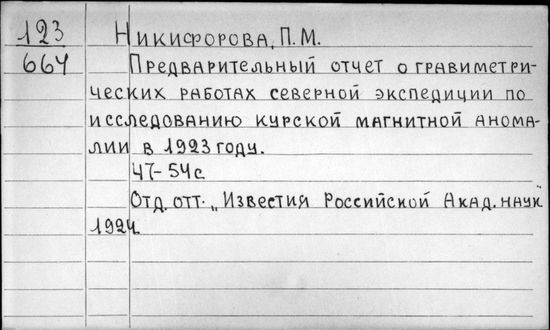 123 Никифорова, П.М.
664 Предварительный отчет о гравиметри-
ческих работах северной экспедиции по
исследованию курской магнитной анома-
лии в 1923 году.
47-54с.
Отд. отт. „Известия Российской Акад. наук"
1924.